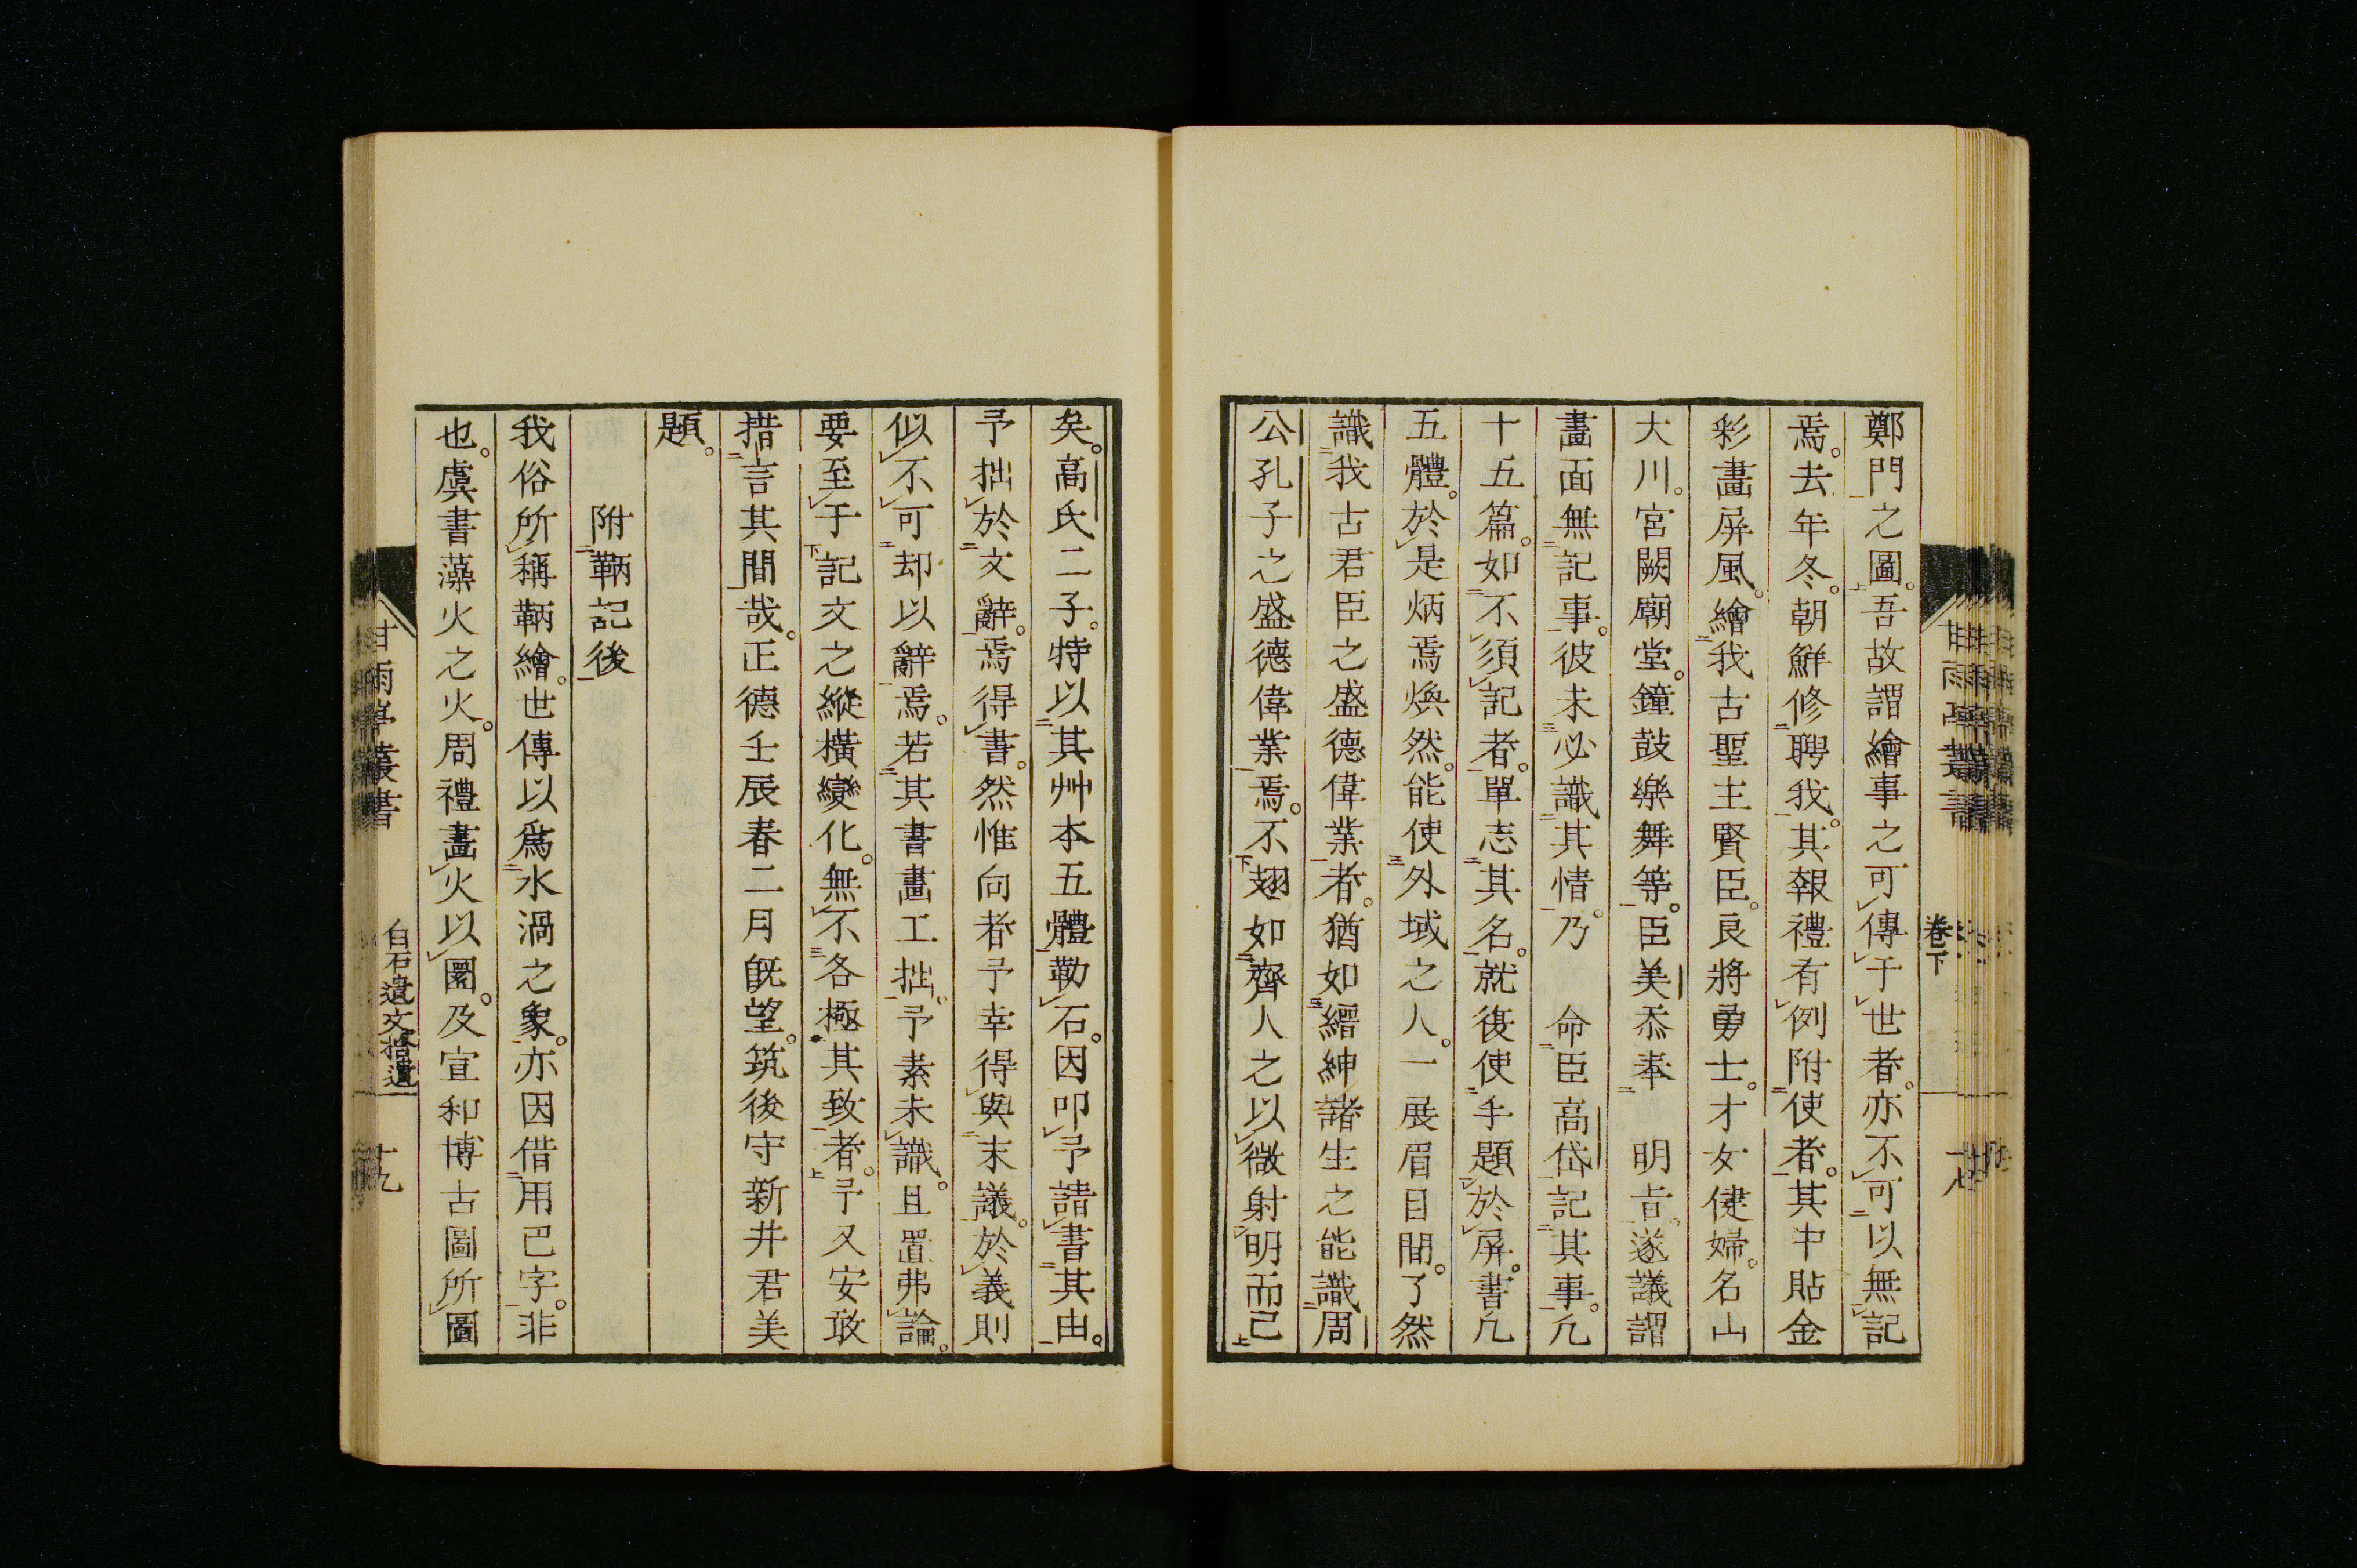 鄭門之圖。吾故謂繪事之可傳于世者。亦不可以無記
焉。去年冬。朝鮮修聘我。其報禮有例附使者。其中貼金
彩畫屏風。繪我古聖主賢臣。良將勇士。才女健婦。名山
大川。宮闕廟堂。鐘鼓樂舞等。臣美忝奉　明旨。遂議謂
畫面無記事。彼未必識其情。乃　命臣高岱記其事。凡
十五篇。如不須記者。單志其名。就復使手題於屏。書凡
五體。於是炳焉煥然。能使外域之人。一展眉目間。了然
識我古君臣之盛德偉業者。猶如縉紳諸生之能識周
公孔子之盛德偉業焉。不翅如齊人之以微射明而已
矣。高氏二子。特以其艸本五體勒石。因叩予諸書其由。
予拙於文辭。焉得書。然惟向者予幸得與末議。於義則
似不可却以辭焉。若其書畫工拙。予素未識。且置弗論。
要至于記文之縱橫變化。無不各極其致者。予又安敢
措言其間哉。正德壬辰春二月既望。筑後守新井君美
題。
附鞆記後
我俗所稱鞆繪。世傳以爲水渦之象。亦因借用巴字。非
也。虞書藻火之火。周禮畫火以圜。及宣和博古圖所圖
卷下
甘雨亭叢書
白石遺文拾遺
十九